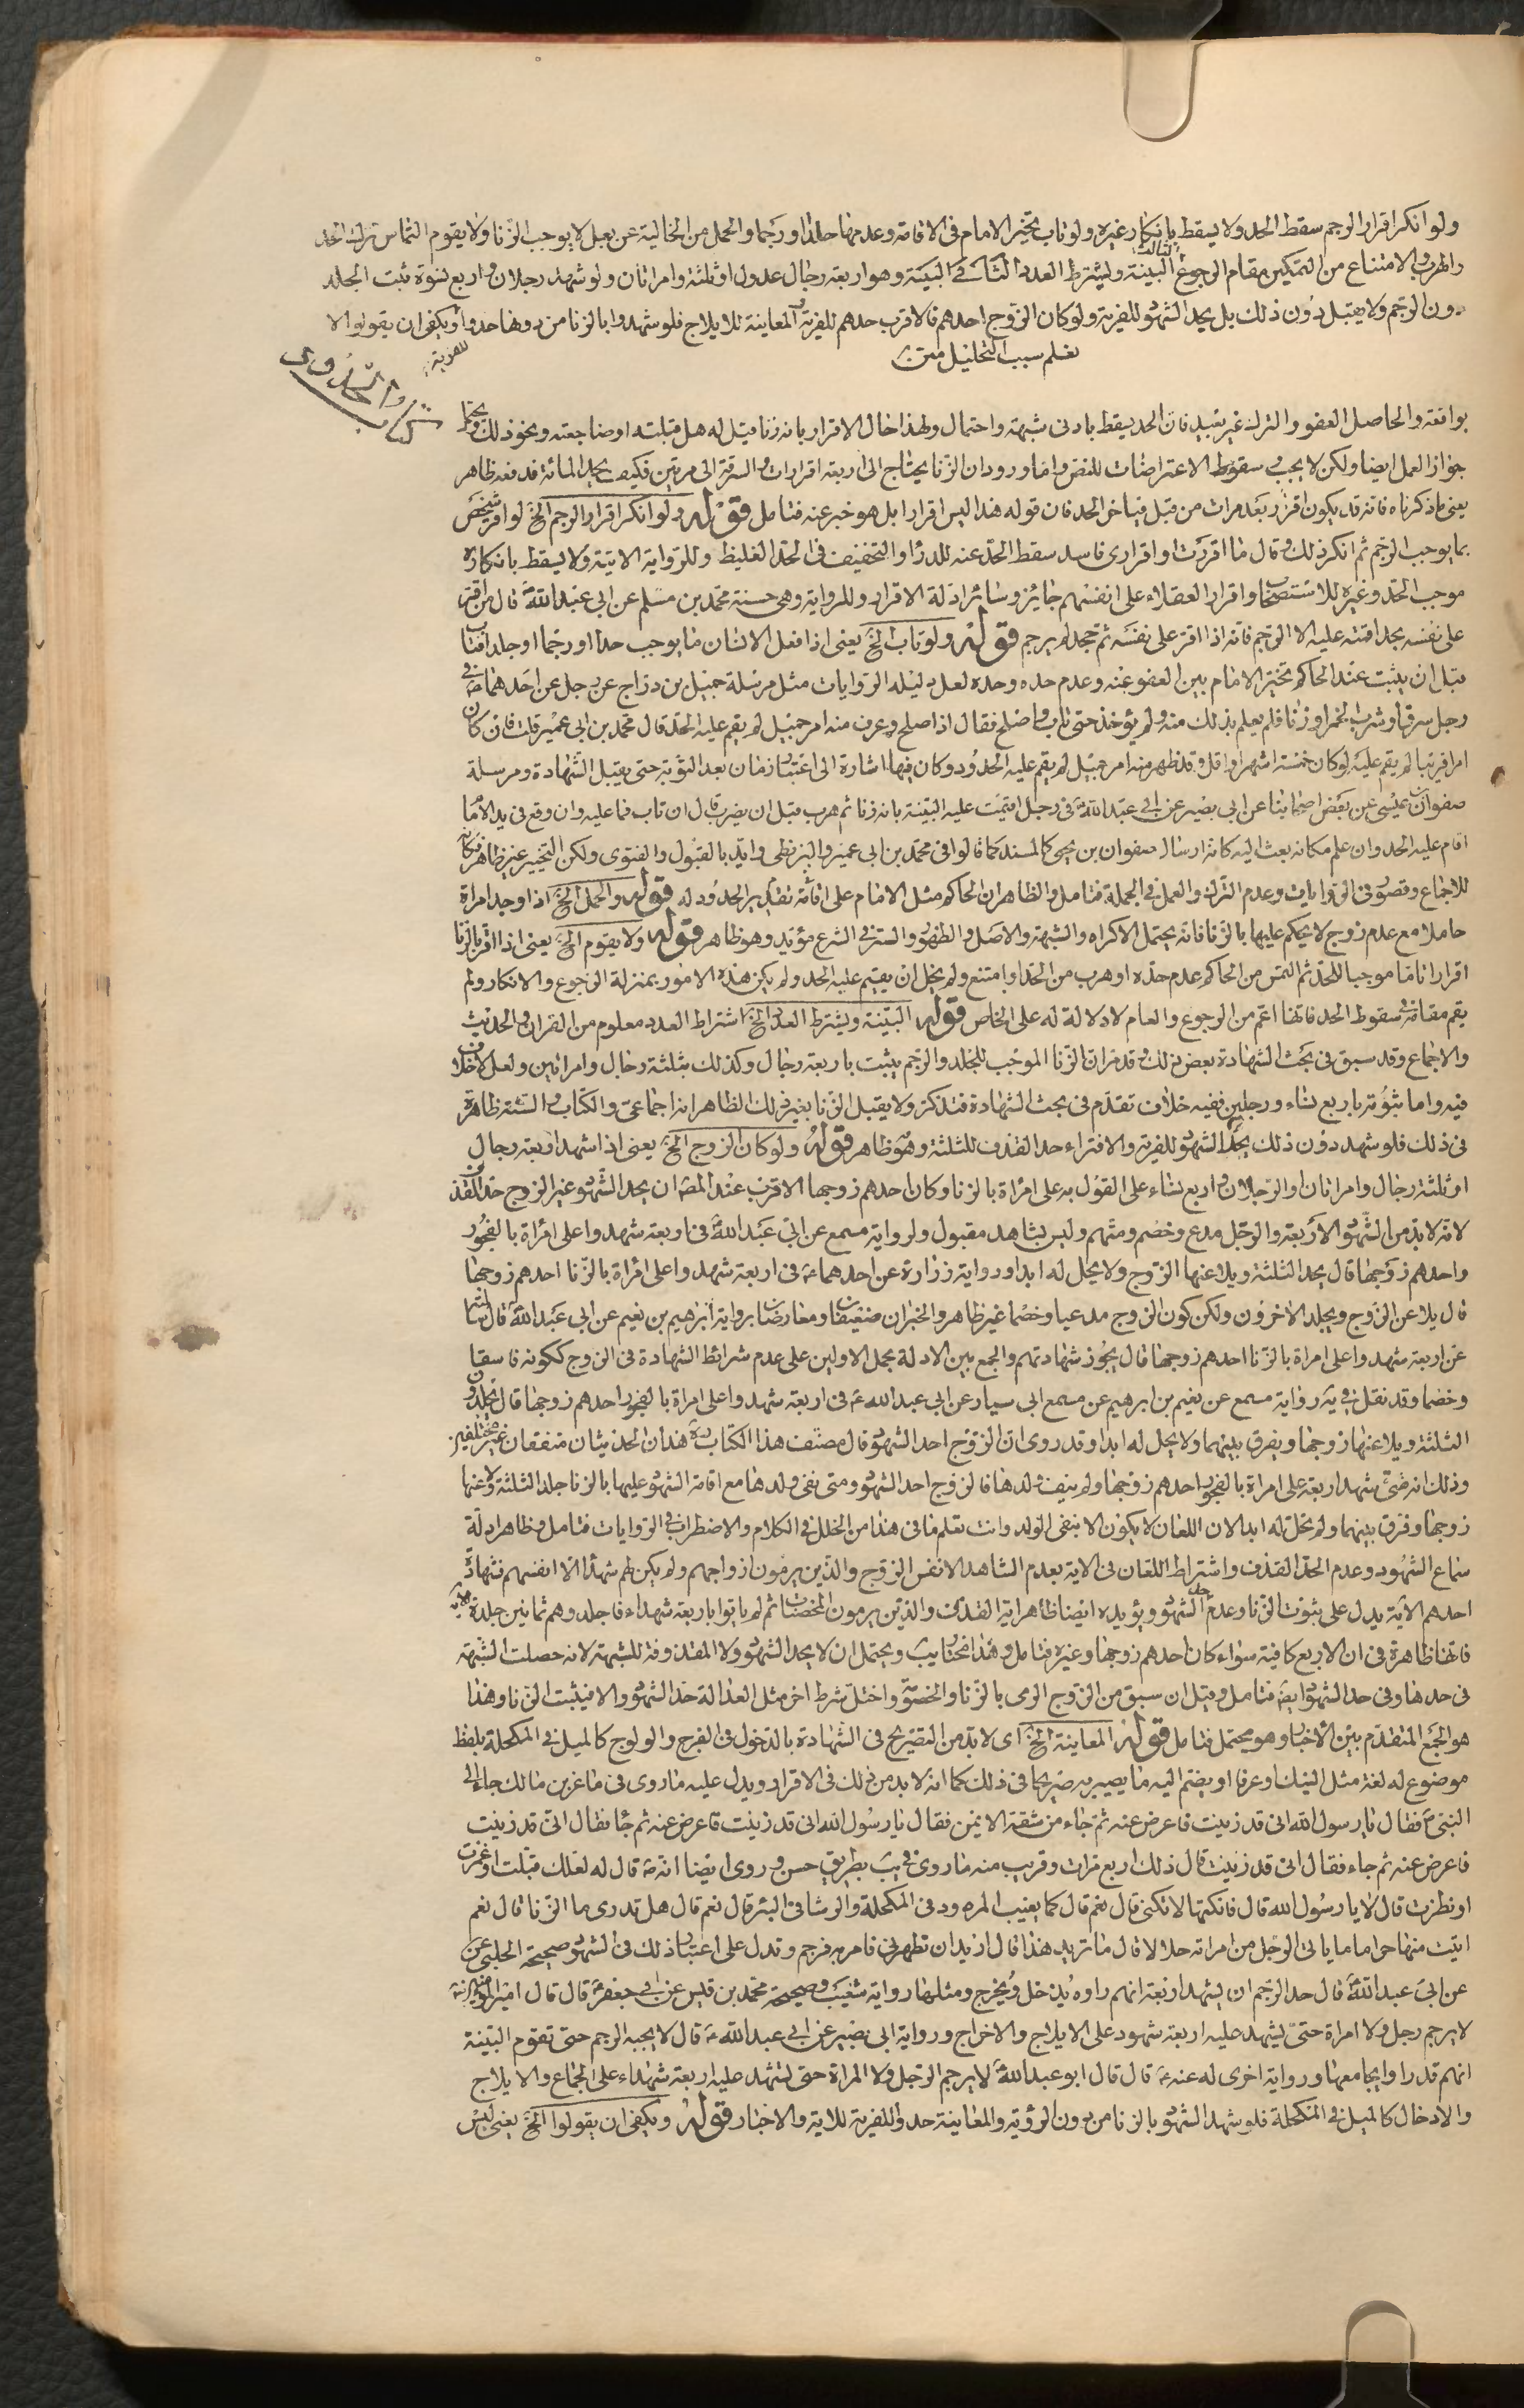 ولو انكر اقرار الرجم سقط الحد ولا يسقط بانكار غيره ولو تاب تخير الامام فى الاقامة وعدمها جلدا او رجما والحمل من الخالية عن بعل لا يوجب الزنا ولا يقوم التماس ترك الحد
والهرب والامتناع من التمكين مقام الرجوع الثالث البينة ويشترط العدد فى البينة وهو اربعة رجال عدول او ثلثة وامراتان ولو شهد رجلان واربع نسوة ثبت الجلد
دون الرجم ولا يقبل دون ذلك بل يحد الشهود للفرية ولو كان الزوج احدهم فالاقرب حدهم للفرية والمعاينة للايلاج فلو شهدوا بالزنا من دونها حدوا للفرية ويكفى ان يقولوا لا
نعلم سبب التحليل متن
كتاب الحدود
بواقعة والحاصل العفو والترك غير بعيد فان الحد يسقط بادنى شبهة واحتمال ولهذا خال الاقرار بانه زنا قيل له هل قبلت او ضاجعته ونحو ذلك ويحتمل
جواز العمل ايضا ولكن لا يجب سقوط الاعتراضات للنص واما ورود ان الزنا يحتاج الى اربعة اقرارات والسرقة الى مرتين فكيف يحد المائة فدفعه ظاهر
يعنى ما ذكرناه فانه قد يكون اقر اربعة مرات من قبل فيتاخر الحد فان قوله هذا ليس اقرارا بل هو خبر عنه فتامل قوله ولو انكر اقرار الرجم الخ لو اقر شخص
بما يوجب الرجم ثم انكر ذلك وقال ما اقررت او اقرارى فاسد سقط الحد عنه للدرا والتخفيف فى الحد الغليظ وللرواية الاتية ولا يسقط بانكاره
موجب الحد وغيره للاستصحاب واقرار العقلاء على انفسهم جايز وسائر ادلة الاقرار وللرواية وهى حسنة محمد بن مسلم عن ابى عبد الله ع قال من اقر
على نفسه بحد اقمته عليه الا الرجم فانه اذا اقر على نفسه ثم جحد لم يرجم قوله ولو تاب الخ يعنى اذا فعل الانسان ما يوجب حدا او رجما او جلدا فتاب
قبل ان يثبت عند الحاكم تخير الامام بين العفو عنه وعدم حده وحده لعل دليله الروايات مثل مرسلة جميل بن دراج عن رجل عن احدهما ع فى
رجل سرق او شرب الخمر او زنا فلم يعلم بذلك منه ولم يؤخذ حتى تاب واصلح فقال اذا صلح وعرف منه امر جميل لم يقم عليه الحد قال محمد بن ابى عمير قلت فان كان
امرا قريبا لم يقم عليه لو كان خمسة اشهر او اقل وقد ظهر منه امر جميل لم يقم عليه الحدود وكان فيها اشارة الى اعتبار زمان بعد التوبة حتى يقبل الشهادة ومرسلة
صفوان بن عيسى عن بعض اصحابنا عن ابى بصير عن ابى عبد الله ع فى رجل اقيمت عليه البينة بانه زنا ثم هرب قبل ان يضرب قال ان تاب فما عليه وان وقع فى يد الامام
اقام عليه الحد وان علم مكانه بعث اليه كانه ارسال صفوان بن يحيى كالمسند كما قالوا فى محمد بن ابى عمير والبزنطى وايد بالقبول والفتوى ولكن التخيير غير ظاهر فكانه
للاجماع وقصور فى الروايات وعدم الترك والعمل فى الجملة فتامل والظاهر ان الحاكم مثل الامام على اقامة تقدير الحدود له قوله والحمل الخ اذا وجد امراة
حاملا مع عدم زوج لا يحكم عليها بالزنا فانه يحتمل الاكراه والشبهة والاصل والظهور والستر فى الشرع مؤيد وهو ظاهر قوله ولا يقوم الخ يعنى اذا اقر بالزنا
اقرارا تاما موجبا للحد ثم التمس من الحاكم عدم حده او هرب من الحد او امتنع ولم يخل ان يقيم عليه الحد ولم يكن هذه الامور بمنزلة الرجوع والانكار ولم
يقم مقامه فى سقوط الحد فانها اعم من الرجوع والعام لا دلالة له على الخاص قوله البينة ويشترط العدد الخ اشتراط العدد معلوم من القران والحديث
والاجماع وقد سبق فى بحث الشهادة بعض ذلك وقد مر ان الزنا الموجب للجلد والرجم يثبت باربعة رجال وكذلك بثلثة رجال وامراتين ولعل لا خلاف
فيه واما ثبوته باربع نساء ورجلين ففيه خلاف تقدم فى بحث الشهادة فتذكر ولا يقبل الزنا بغير ذلك الظاهر انه اجماعى والكتاب والسنة ظاهرة
فى ذلك فلو شهد دون ذلك يحد الشهود للفرية والافتراء حد القذف للثلثة وهو ظاهر قوله ولو كان الزوج الخ يعنى اذا شهد اربعة رجال
او ثلثة رجال وامراتان او الرجلان واربع نساء على القول به على امراة بالزنا وكان احدهم زوجها الاقرب عند المصنف ان يحد الشهود غير الزوج حد القذف
لانه لا بد من الشهود الاربعة والرجل مدع وخصم ومتهم وليس بشاهد مقبول ولرواية مسمع عن ابى عبد الله ع فى اربعة شهدوا على امراة بالفجور
واحدهم زوجها قال يحد الثلثة ويلاعنها الزوج ولا يحل له ابدا ورواية زرارة عن احدهما ع فى اربعة شهدوا على امراة بالزنا احدهم زوجها
قال يلاعن الزوج ويجلد الاخرون ولكن كون الزوج مدعيا وخصما غير ظاهر والخبران ضعيفان ومعارضان برواية ابرهيم بن نعيم عن ابى عبد الله ع قال سالته
عن اربعة شهدوا على امراة بالزنا احدهم زوجها قال يجوز شهادتهم والجمع بين الادلة بحمل الاولين على عدم شرائط الشهادة فى الزوج ككونه فاسقا
وخصما وقد نقل فى يه رواية مسمع عن نعيم بن ابرهيم عن مسمع ابى سيار عن ابى عبد الله ع فى اربعة شهدوا على امراة بالفجور احدهم زوجها قال يجلدون
الثلثة ويلاعنها زوجها ويفرق بينهما ولا يحل له ابدا وقد روى ان الزوج احد الشهود قال مصنف هذا الكتاب ره هذان الحديثان متفقان غير مختلفين
وذلك انه متى شهد اربعة على امراة بالفجور احدهم زوجها ولم ينف ولدها فالزوج احد الشهود ومتى نفى ولدها مع اقامة الشهود عليها بالزنا جلد الثلثة ولاعنها
زوجها وفرق بينهما ولم تحل له ابدا لان اللعان لا يكون الا بنفى الولد وانت تعلم ما فى هذا من الخلل فى الكلام والاضطراب فى الروايات فتامل وظاهر ادلة
سماع الشهود وعدم الحد القذف واشتراط اللعان فى الاية بعدم الشاهد الا نفس الزوج والذين يرمون ازواجهم ولم يكن لهم شهداء الا انفسهم فشهادة
احدهم الاية يدل على ثبوت الزنا وعدم حد الشهود ويؤيده ايضا ظاهر اية القذف والذين يرمون المحصنات ثم لم ياتوا باربعة شهداء فاجلدوهم ثمانين جلدة
فانها ظاهرة فى ان الاربع كافية سواء كان احدهم زوجها وغيره فتامل وهذا مختار يب ويحتمل ان لا يحد الشهود ولا المقذوفة للشبهة لانه حصلت الشبهة
فى حدها وفى حد الشهود ايضا فتامل وقيل ان سبق من الزوج الرمى بالزنا والخصومة واختل شرط اخر مثل العدالة حد الشهود والا فيثبت الزنا وهذا
هو الجمع المتقدم بين الاخبار وهو محتمل فتامل قوله المعاينة الخ اى لا بد من التصريح فى الشهادة بالدخول فى الفرج والولوج كالميل فى المكحلة بلفظ
موضوع له لغة مثل النيك او عرفا او يضم اليه ما يصير به صريحا فى ذلك كما انه لا بد من ذلك فى الاقرار ويدل عليه ما روى فى ماعز بن مالك جاء الى
النبى ص فقال يا رسول الله انى قد زنيت فاعرض عنه ثم جاء من شقه الايمن فقال يا رسول الله انى قد زنيت فاعرض عنه ثم جاء فقال انى قد زنيت
فاعرض عنه ثم جاء فقال انى قد زنيت قال ذلك اربع مرات وقريب منه ما روى فى يب بطريق حسن وروى ايضا انه ص قال له لعلك قبلت او غمزت
او نظرت قال لا يا رسول الله قال فانكتها لا تكنى قال نعم قال كما يغيب المرود فى المكحلة والرشا فى البئر قال نعم قال هل تدرى ما الزنا قال نعم
اتيت منها حراما ما ياتى الرجل من امراته حلالا قال ما تريد هذا قال اريد ان تطهرنى فامر به فرجم وتدل على اعتبار ذلك فى الشهود صحيحة الحلبى عن
عن ابى عبد الله ع قال حد الرجم ان يشهد اربعة انهم راوه يدخل ويخرج ومثلها رواية شعيب وصحيحة محمد بن قيس عن ابى جعفر ع قال قال امير المؤمنين ع
لا يرجم رجل ولا امراة حتى يشهد عليه اربعة شهود على الايلاج والاخراج ورواية ابى بصير عن ابى عبد الله ع قال لا يجبه الرجم حتى تقوم البينة
انهم قد راوا يجامعها ورواية اخرى له عنه ع قال قال ابو عبد الله ع لا يرجم الرجل ولا المراة حتى تشهد عليه اربعة شهداء على الجماع والايلاج
والادخال كالميل فى المكحلة فلو شهد الشهود بالزنا من دون الرؤية والمعاينة حد واللفرية للاية والاخبار قوله ويكفى ان يقولوا الخ يعنى ليس